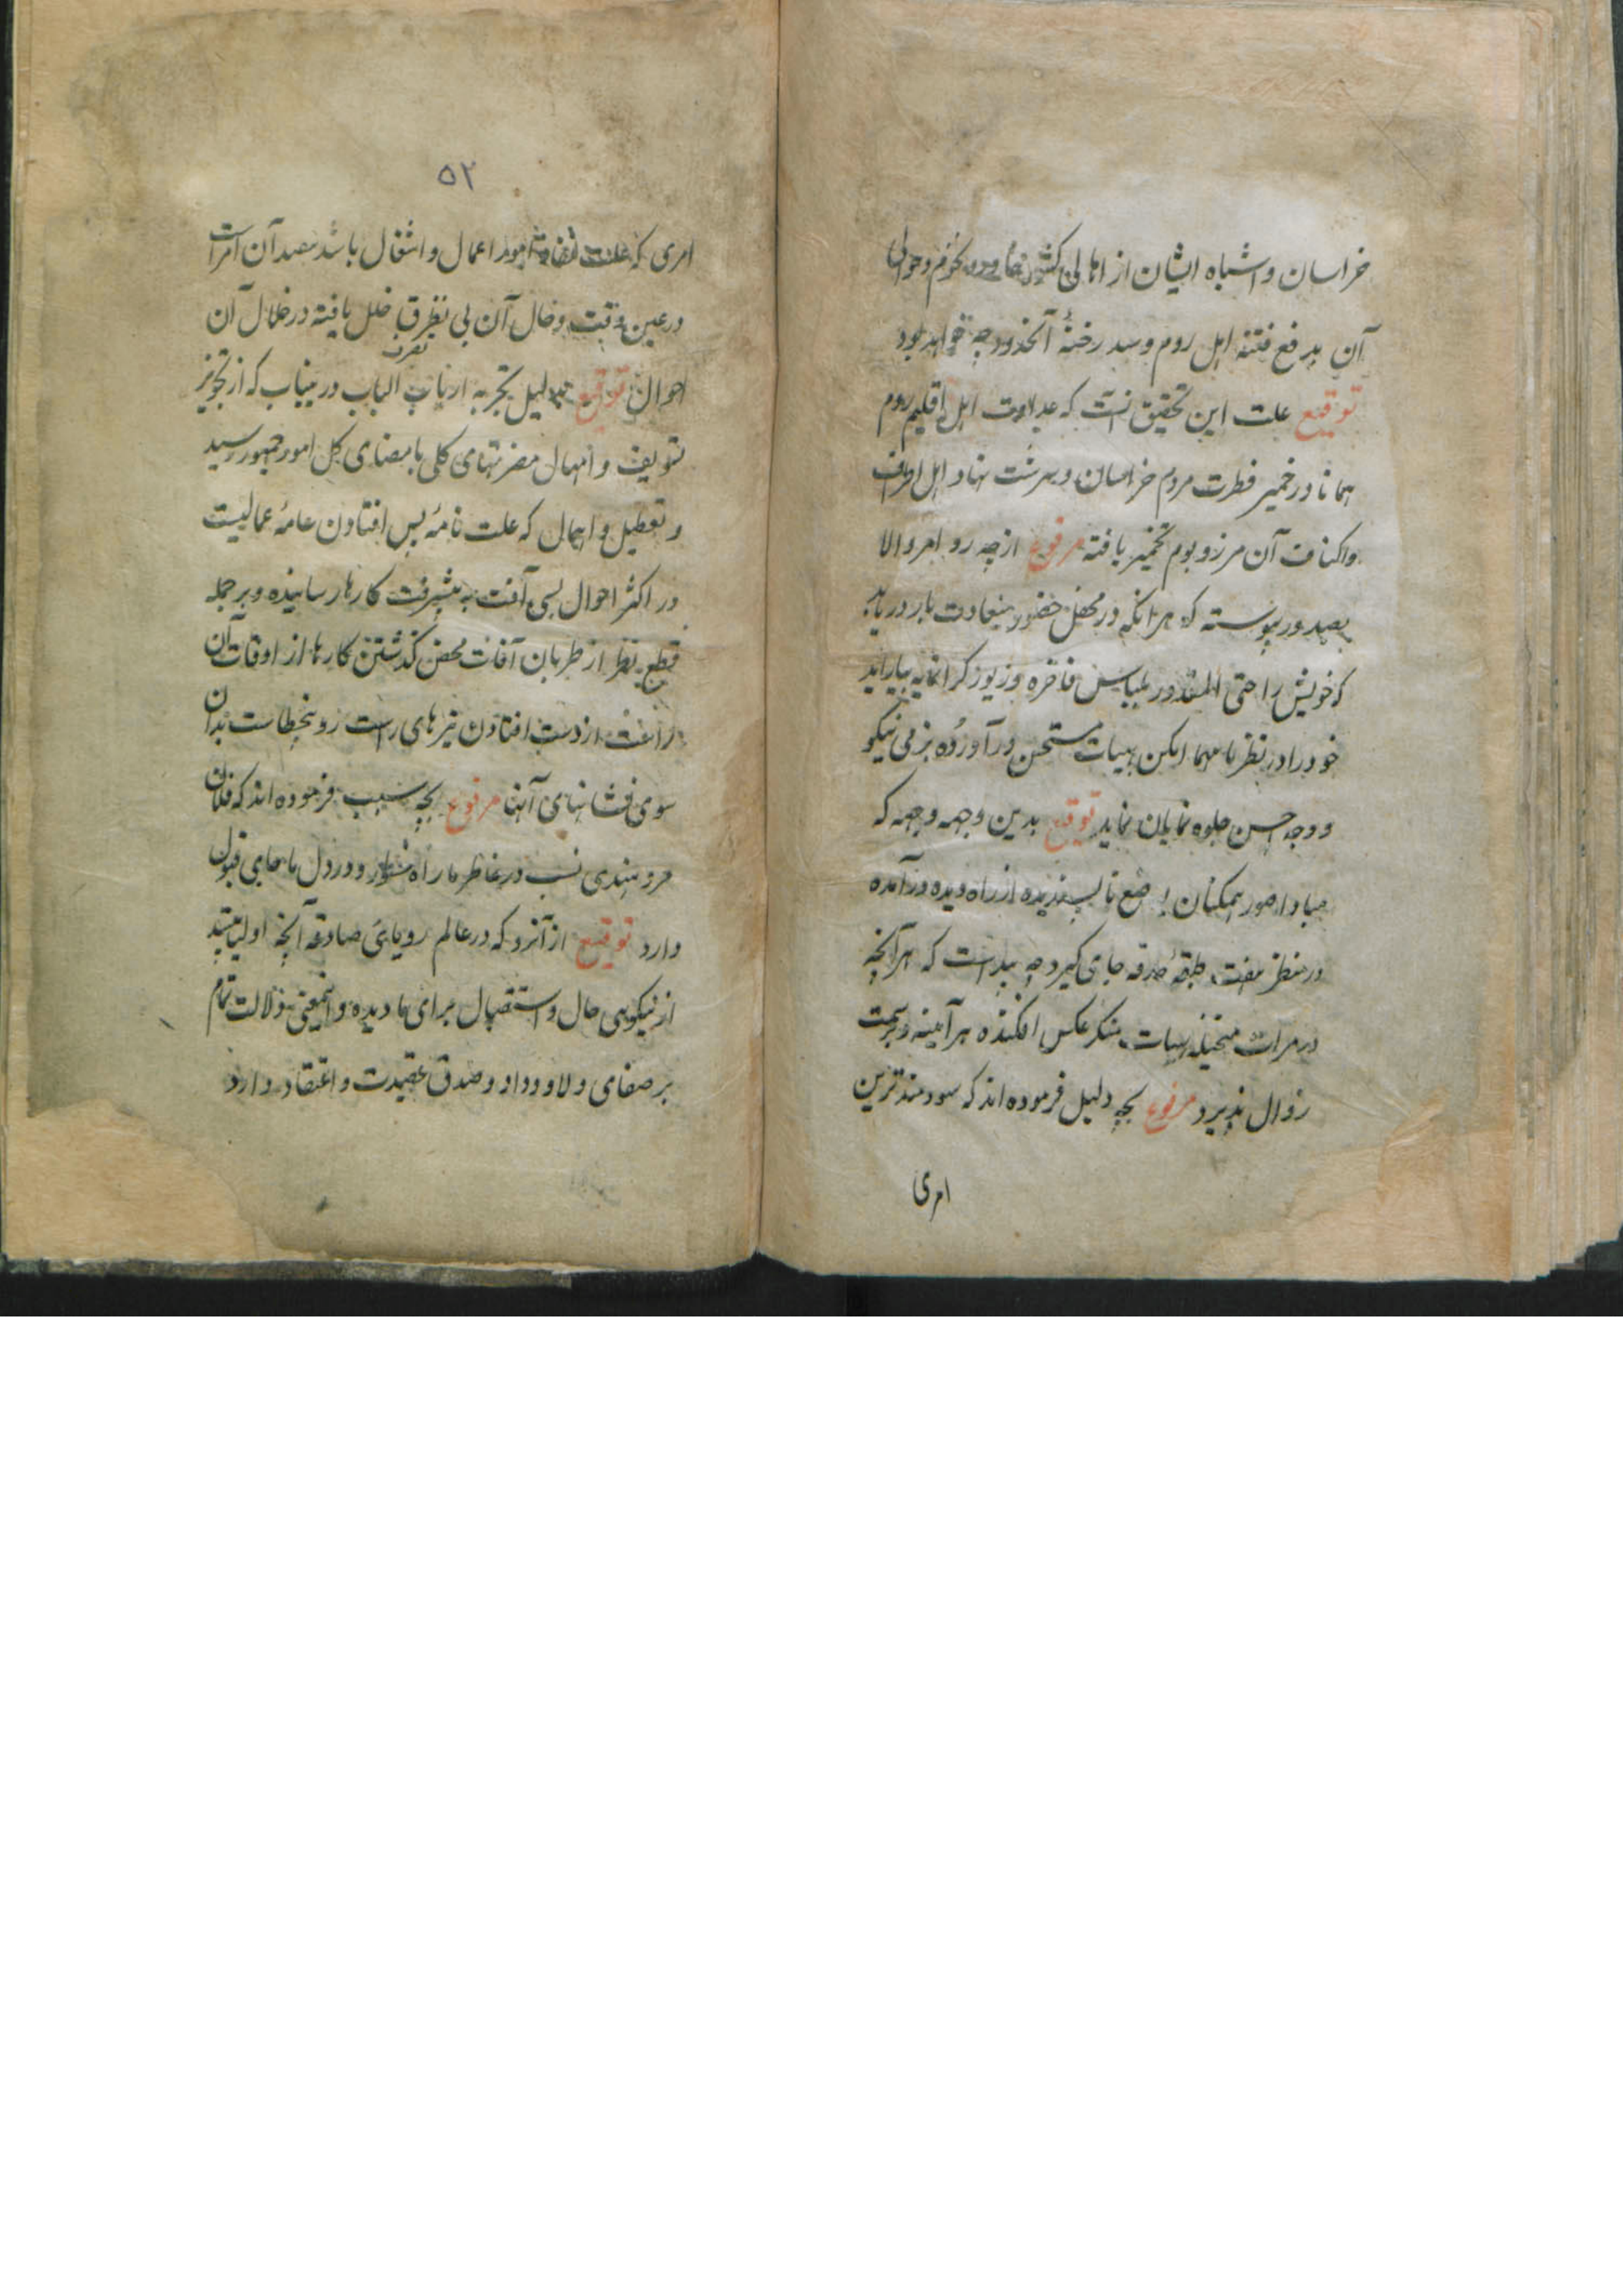 خراسان و اشباه ایشان از اهالی کشور و حوالی
آن بدفع فتنه اهل روم و سد رخنهٔ آنحدود چه خواهد بود
توقیع علت این تحقیق آنست که عداوت اهل اقلیم روم
همانا در خمیر فطرت مردم خراسان و سرشت نهاد اهل اطراف
واکناف آن مرز و بوم تخمیر یافته مرفوع از چه رو امر والا
بصدور پیوسته که هرانکه در محفل حضور سعادت بار دریابد
که خویش را حتی المقدور بلباس فاخره و زیور گرانمایه بیاراید
خود را در نظر ما مهما امکن بهیات مستحسن در آورده بزمی نیکو
و وجه احسن جلوه نمایان نماید توقیع بدین وجهه وجهه که
مبادا صور همکنان بوضع ناپسندیده از راه دیده درآمده
در منظر هفت طبقهٔ حدقه جای گیرد چه پیداست که هرآنچه
در مرات متخیله هیات منکر عکس افکنده هرآینه وبر سمت
زوال نپذیرد مرفوع بچه دلیل فرموده اند که سودمندترین
امری
۵۲
امری که علت امور اعمال و اشغال باشد مفسد آن امرات
در عین وقت و حال آن بی تطرق خلل یافته در خلال آن
تصرف
احوال توقیع بدلیل تجربه ارباب الباب درینباب که از تجویز
تسویف و امهال مضرتهای کلی بامضای کل امور جمهور رسید
و تعطیل و اهمال که علت تامهٔ پس افتادن عامهٔ عمالیست
در اکثر احوال بسی آفت به پیشرفت کارها رسانیده و بر جمله
قطع نظر از طریان آفات محض گذشتن کارها از اوقات آن
را از دست افتادن تیرهای راست رو بخطاست بدان
سوی نشانهای آنها مرفوع بچه سبب فرموده اند که فلان
مرد هندی نسب در خاطر ما راه و در دل ما جای قبول
دارد توقیع از آنرو که در عالم رویای صادقه آنچه
از نیکویی حال و استقبال برای ما دیده و اینمعنی دلالت تمام
بر صفای ولا و وداد و صدق عقیدت و اعتقاد دارد